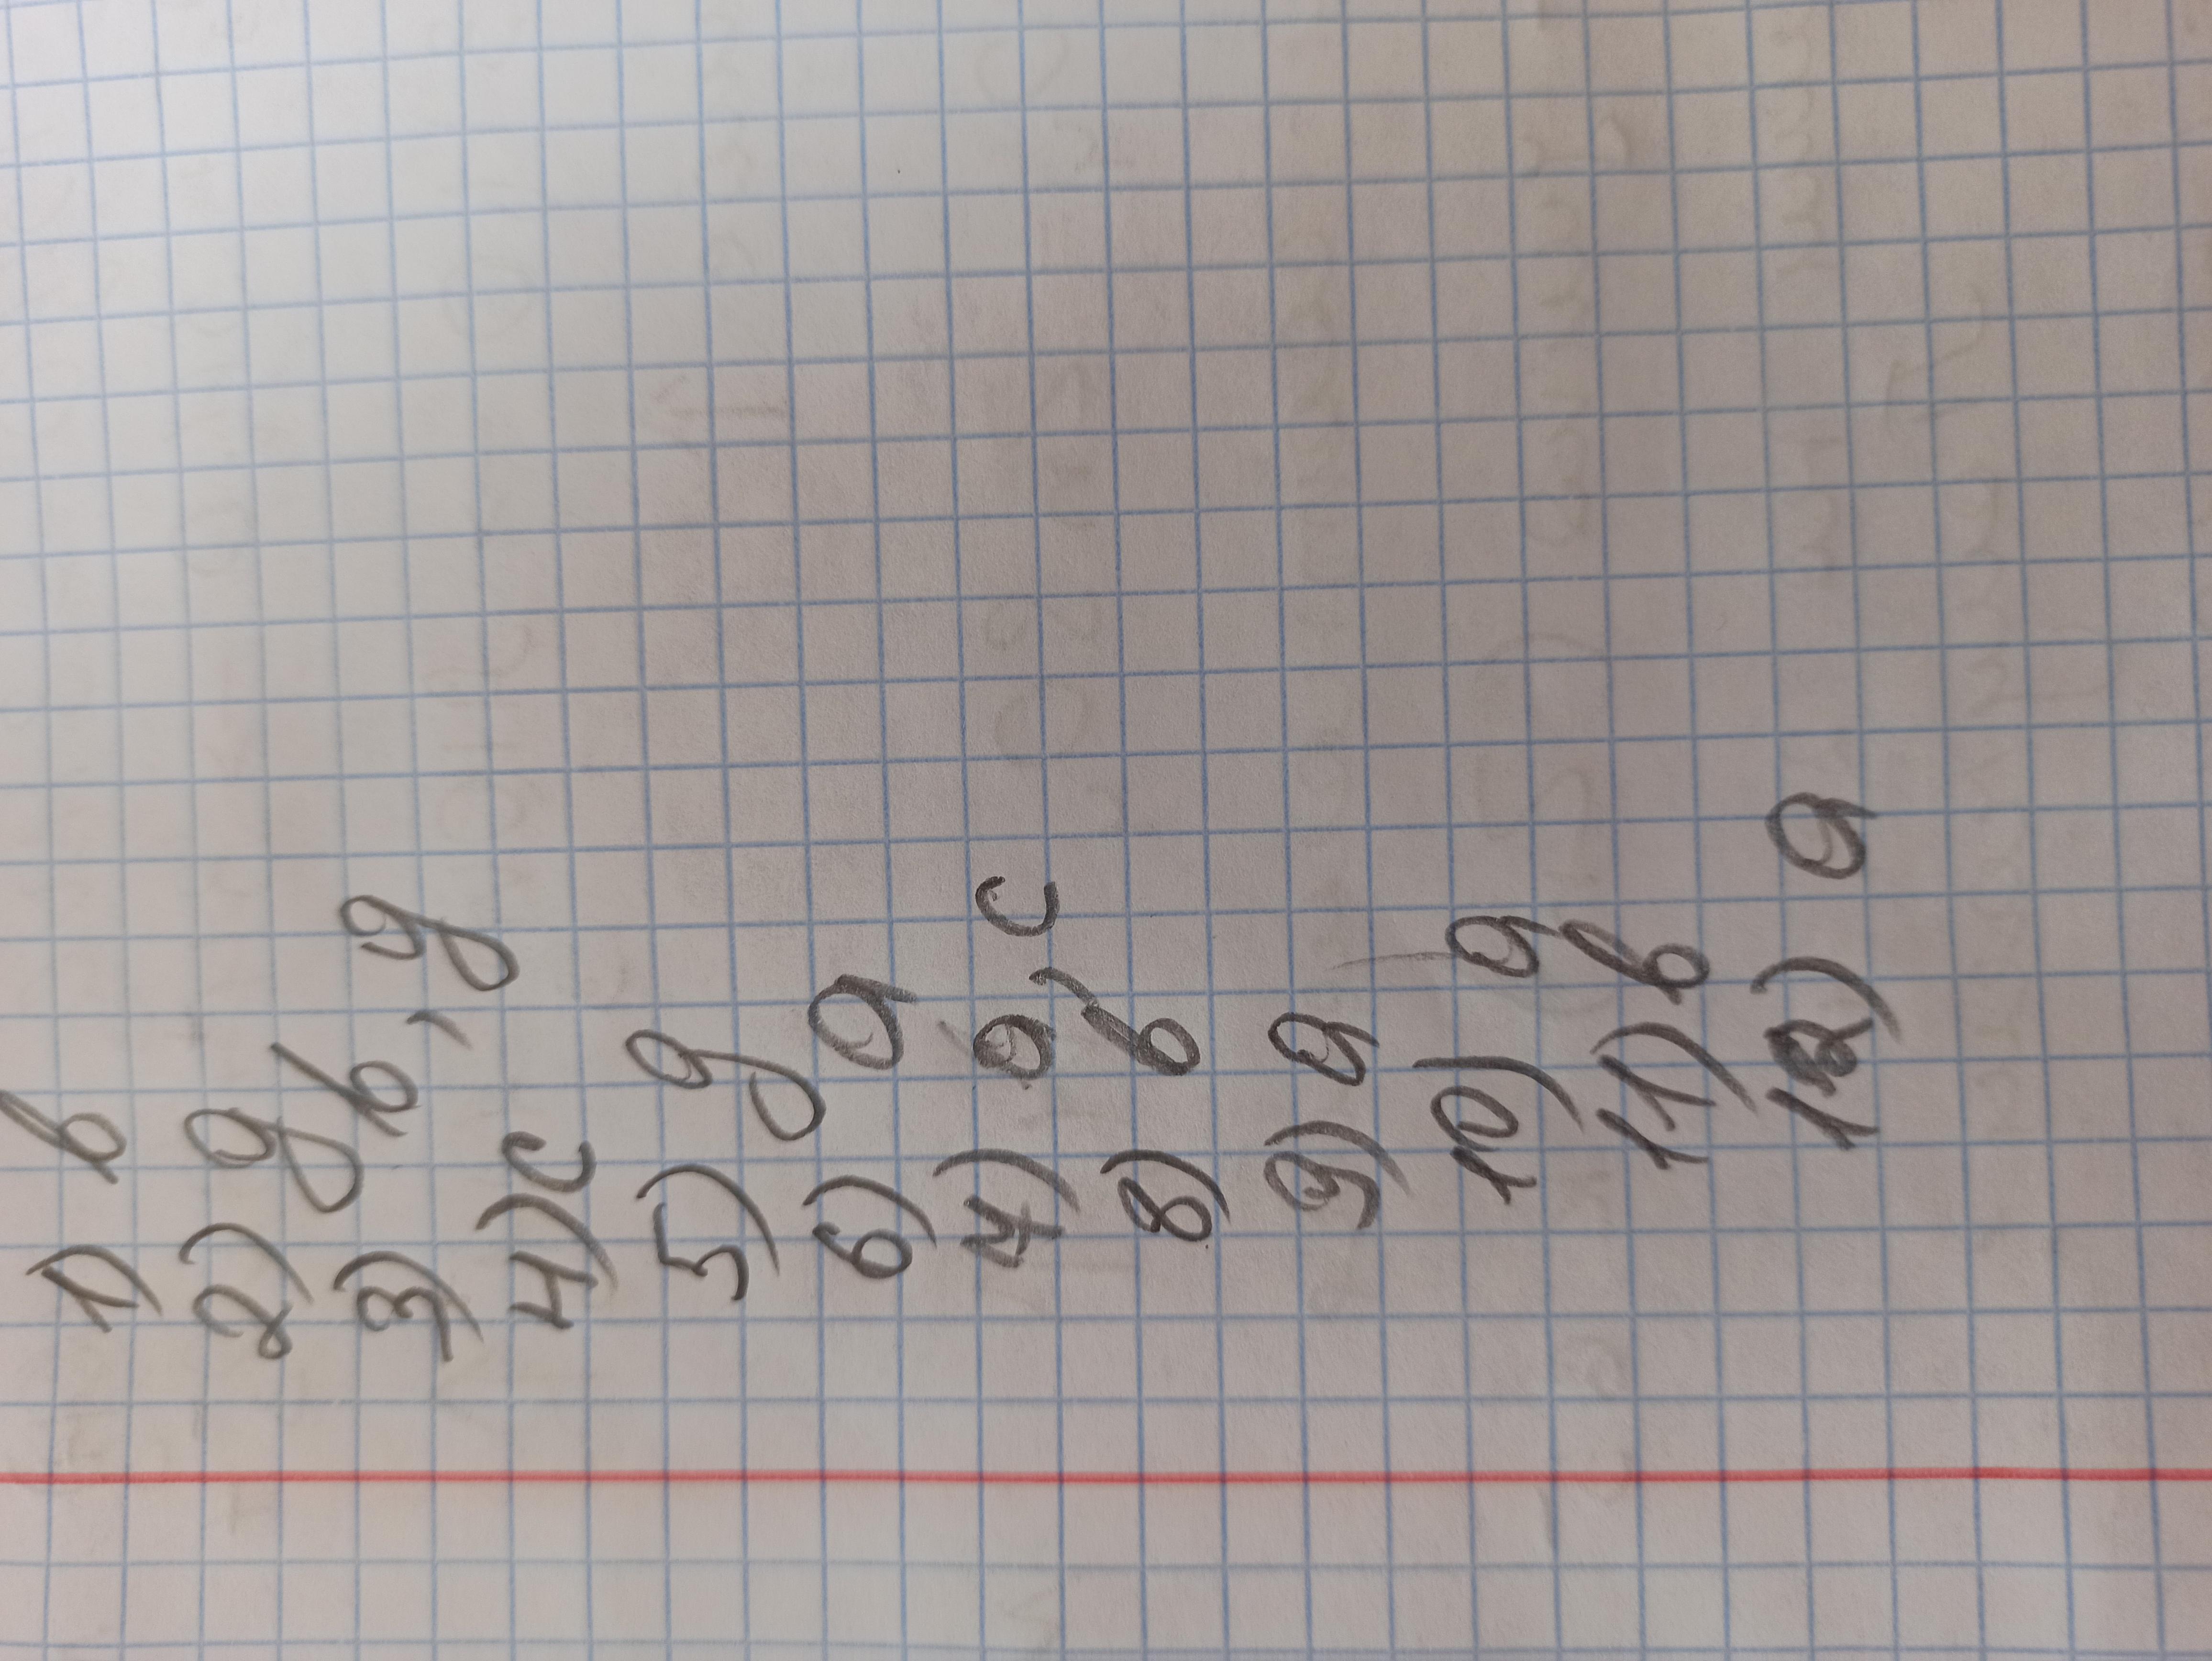 1) b
2) g
3) b, g
4) c
5) g
6) a
7) a, c
8) b
9) a
10) a
11) b
12) a